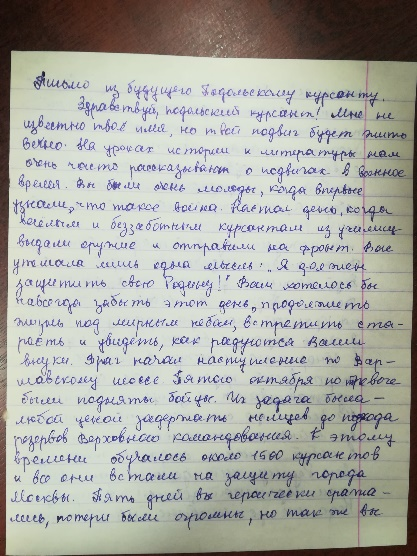 Письмо из будущего Подольскому курсанту.
Здравствуй, подольский курсант! Мне не
известно твоё имя, но твой подвиг будет жить
вечно. На уроках истории и литературы нам
очень часто рассказывают о подвигах в военное
время. Вы были очень молоды, когда впервые
узнали, что такое война. Настал день, когда
весёлым и беззаботным курсантам из училищ
выдали оружие и отправили на фронт. Вас
утешала лишь одна мысль: "Я должен
защитить свою Родину!" Вам хотелось бы
навсегда забыть этот день, продолжить
жизнь под мирным небом, встретить ста-
рость и увидеть, как радуются Ваши
внуки. Враг начал наступление по Вар-
шавскому шоссе. Пятого октября по тревоге
были подняты бойцы. Их задача была -
любой ценой задержать немцев до подхода
резервов Верховного командования. К этому
времени обучалось около 1500 курсантов
и все они встали на защиту города
Москвы. Пять дней вы героически сража-
лись, потери были огромные, но так же вы